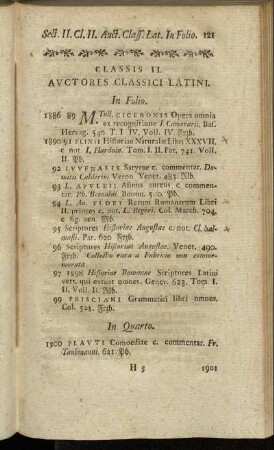 Sect. II. Cl. II. Auct. Class. Lat. In Folio. 121
CLASSIS II.
AVCTORES CLASSICI LATINI.
In Folio.
1886 89 M. Tull. CICERONIS Opera omnia
ex recognitione I. Camerarii. Bas.
Hervag. 540. T. I-IV. Voll. IV. Frzb.
1890 91 PLINII Historiae Naturalis Libri XXXVII,
c. not. I. Harduin. Tom. I. II. Par. 741. Voll.
II. Pb.
92 IVVENALIS Satyrae c. commentar. Do-
mitii Calderini Veron. Venet. 483. Hlb.
93 L. APVLEII Asinus aureus c. commen-
tar. Ph. Beroaldi. Bonon. 500. Pb.
94 L. An. FLORI Rerum Romanarum Libri
II. priores c. not. L. Begeri. Col. March. 704.
c. fig. aen. Pb.
95 Scriptores Historiae Augustae c. not. Cl. Sal-
masii. Par. 620. Frzb.
96 Scriptores Historiae Augustae. Venet. 490.
Frzb. Collectio rara a Fabricio non comme-
morata.
97 1898 Historiae Romanae Scriptores Latini
vett. qui extant omnes. Genev. 623. Tom. I.
II. Voll. II. Hlb.
99 PRISCIANI Grammatici libri omnes.
Col. 528. Frzb.
In Quarto.
1900 PLAVTI Comoediae c. commentar. Fr.
Taubmanni. 621. Pb.
H 5 1901